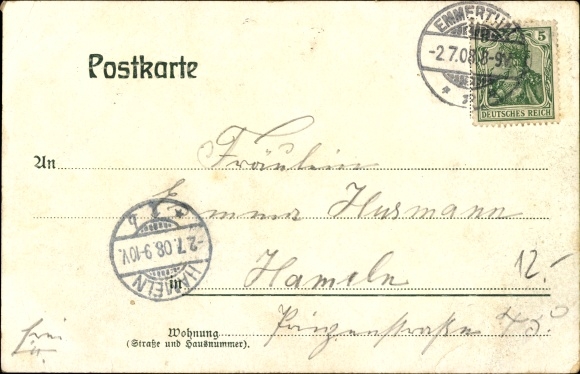 Postkarte
EMMERTHAL
-2.7.08.8-9V.
5
DEUTSCHES REICH
An Fräulein
Emma Husmann
HAMELN
-2.7.08.9-10V.
in Hameln
12.-
Wohnung Prinzenstraße
(Straße und Hausnummer).